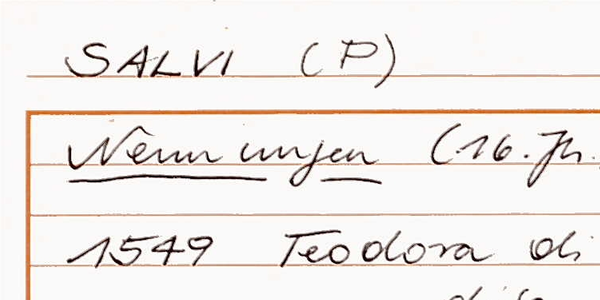 SALVI (P)
Nennungen (16. Jh.
1549 Teodora di